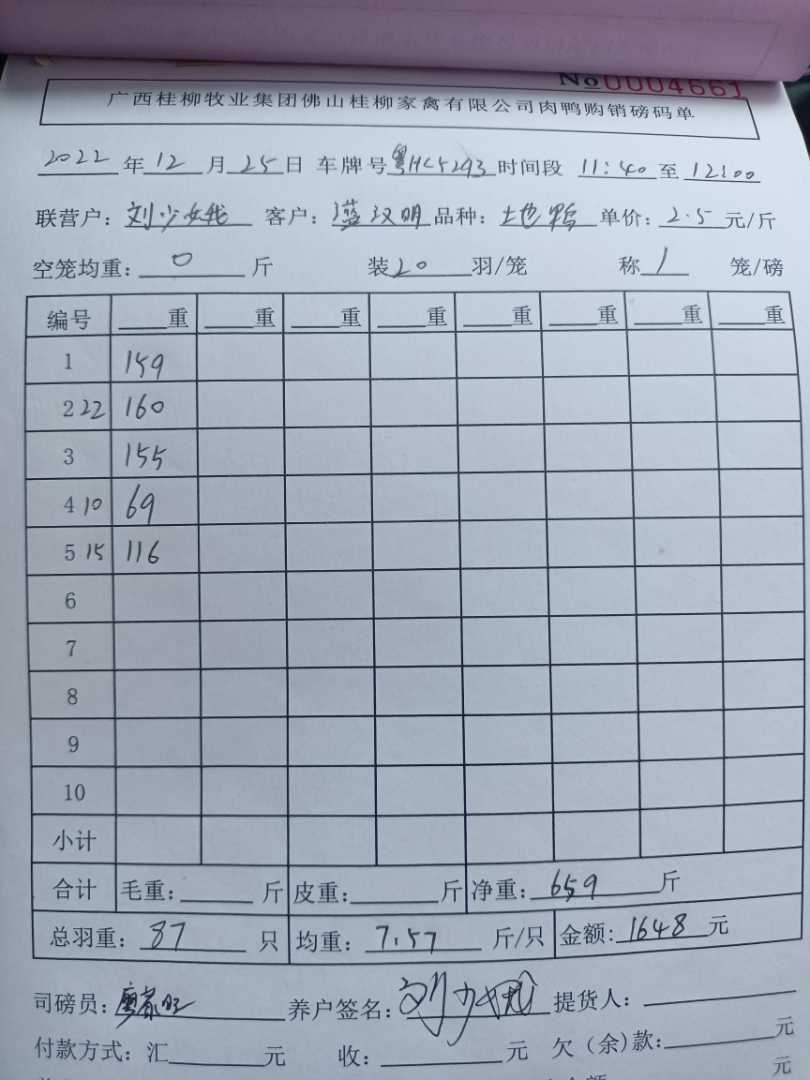 No0004661
广西桂柳牧业集团佛山桂柳家禽有限公司肉鸭购销磅码单
2022年12月25日 车牌号粤HC5293时间段 11:40至12:00
联营户: 刘少 客户: 汉明 品种: 土地鸭 单价: 2.5元/斤
空笼均重: 0 斤 装20羽/笼 称1笼/磅
编号 重 重 重 重 重 重 重 重
1 159
2 22 160
3 155
4 10 69
5 15 116
6
7
8
9
10
小计
合计 毛重: 斤 皮重: 斤 净重: 659 斤
总羽重: 87 只 均重: 7.57 斤/只 金额: 1648元
司磅员: 养户签名: 刘少 提货人:
付款方式: 汇 元 收: 元 欠(余)款: 元
元